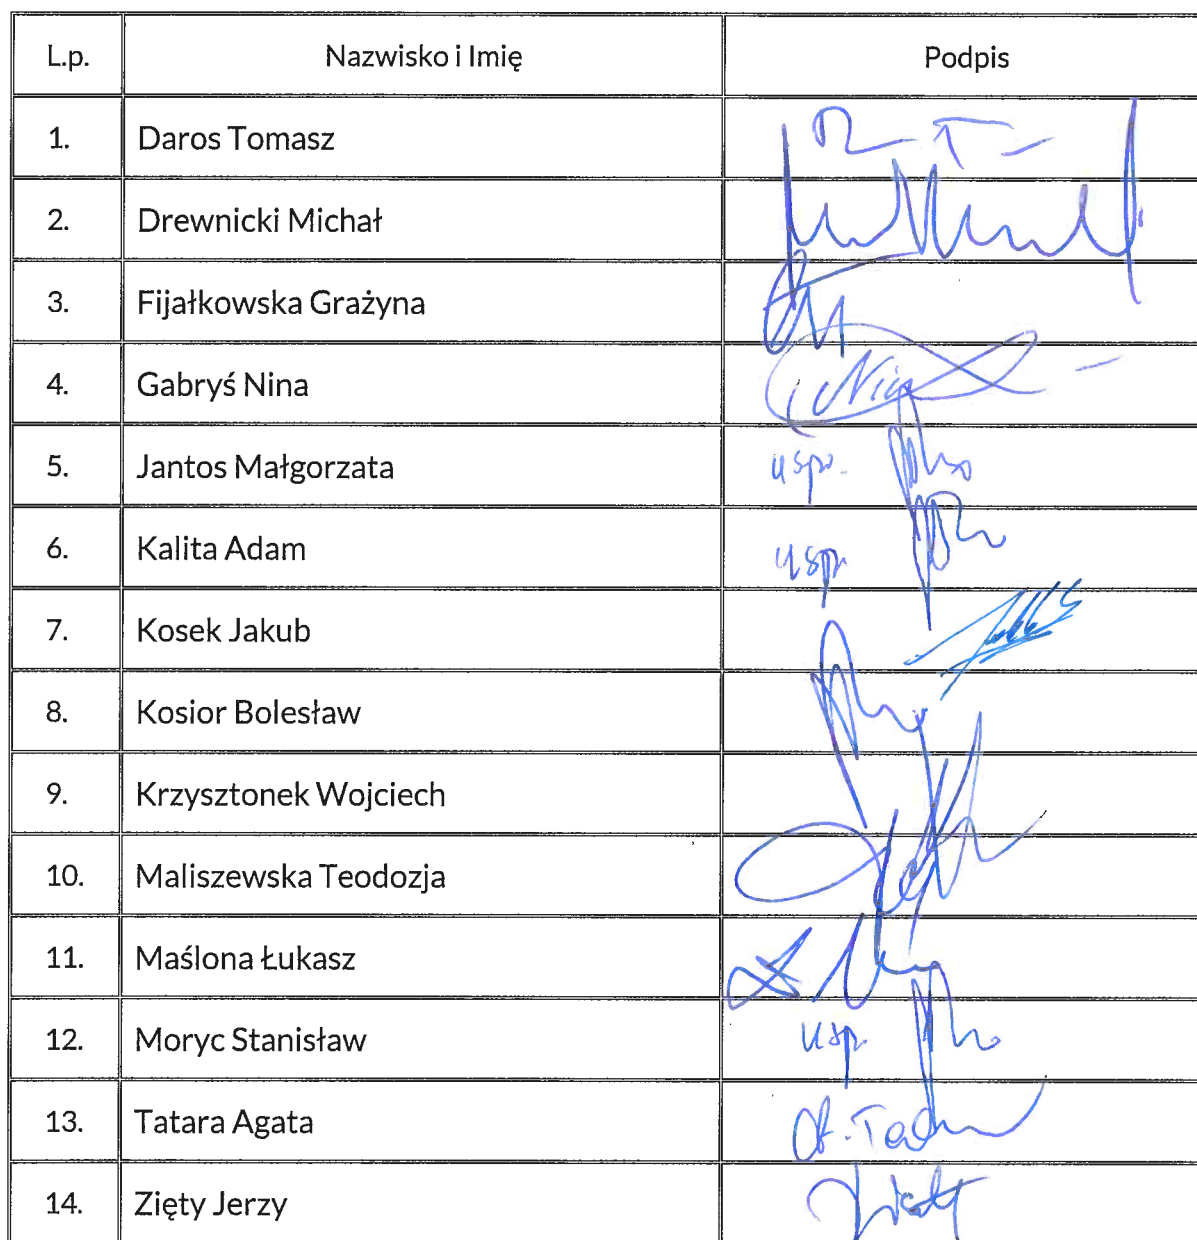 L.p. Nazwisko i Imię Podpis
1. Daros Tomasz
2. Drewnicki Michał
3. Fijałkowska Grażyna
4. Gabryś Nina
5. Jantos Małgorzata uspr.
6. Kalita Adam uspr.
7. Kosek Jakub
8. Kosior Bolesław
9. Krzysztonek Wojciech
10. Maliszewska Teodozja
11. Maślona Łukasz
12. Moryc Stanisław usp.
13. Tatara Agata
14. Zięty Jerzy